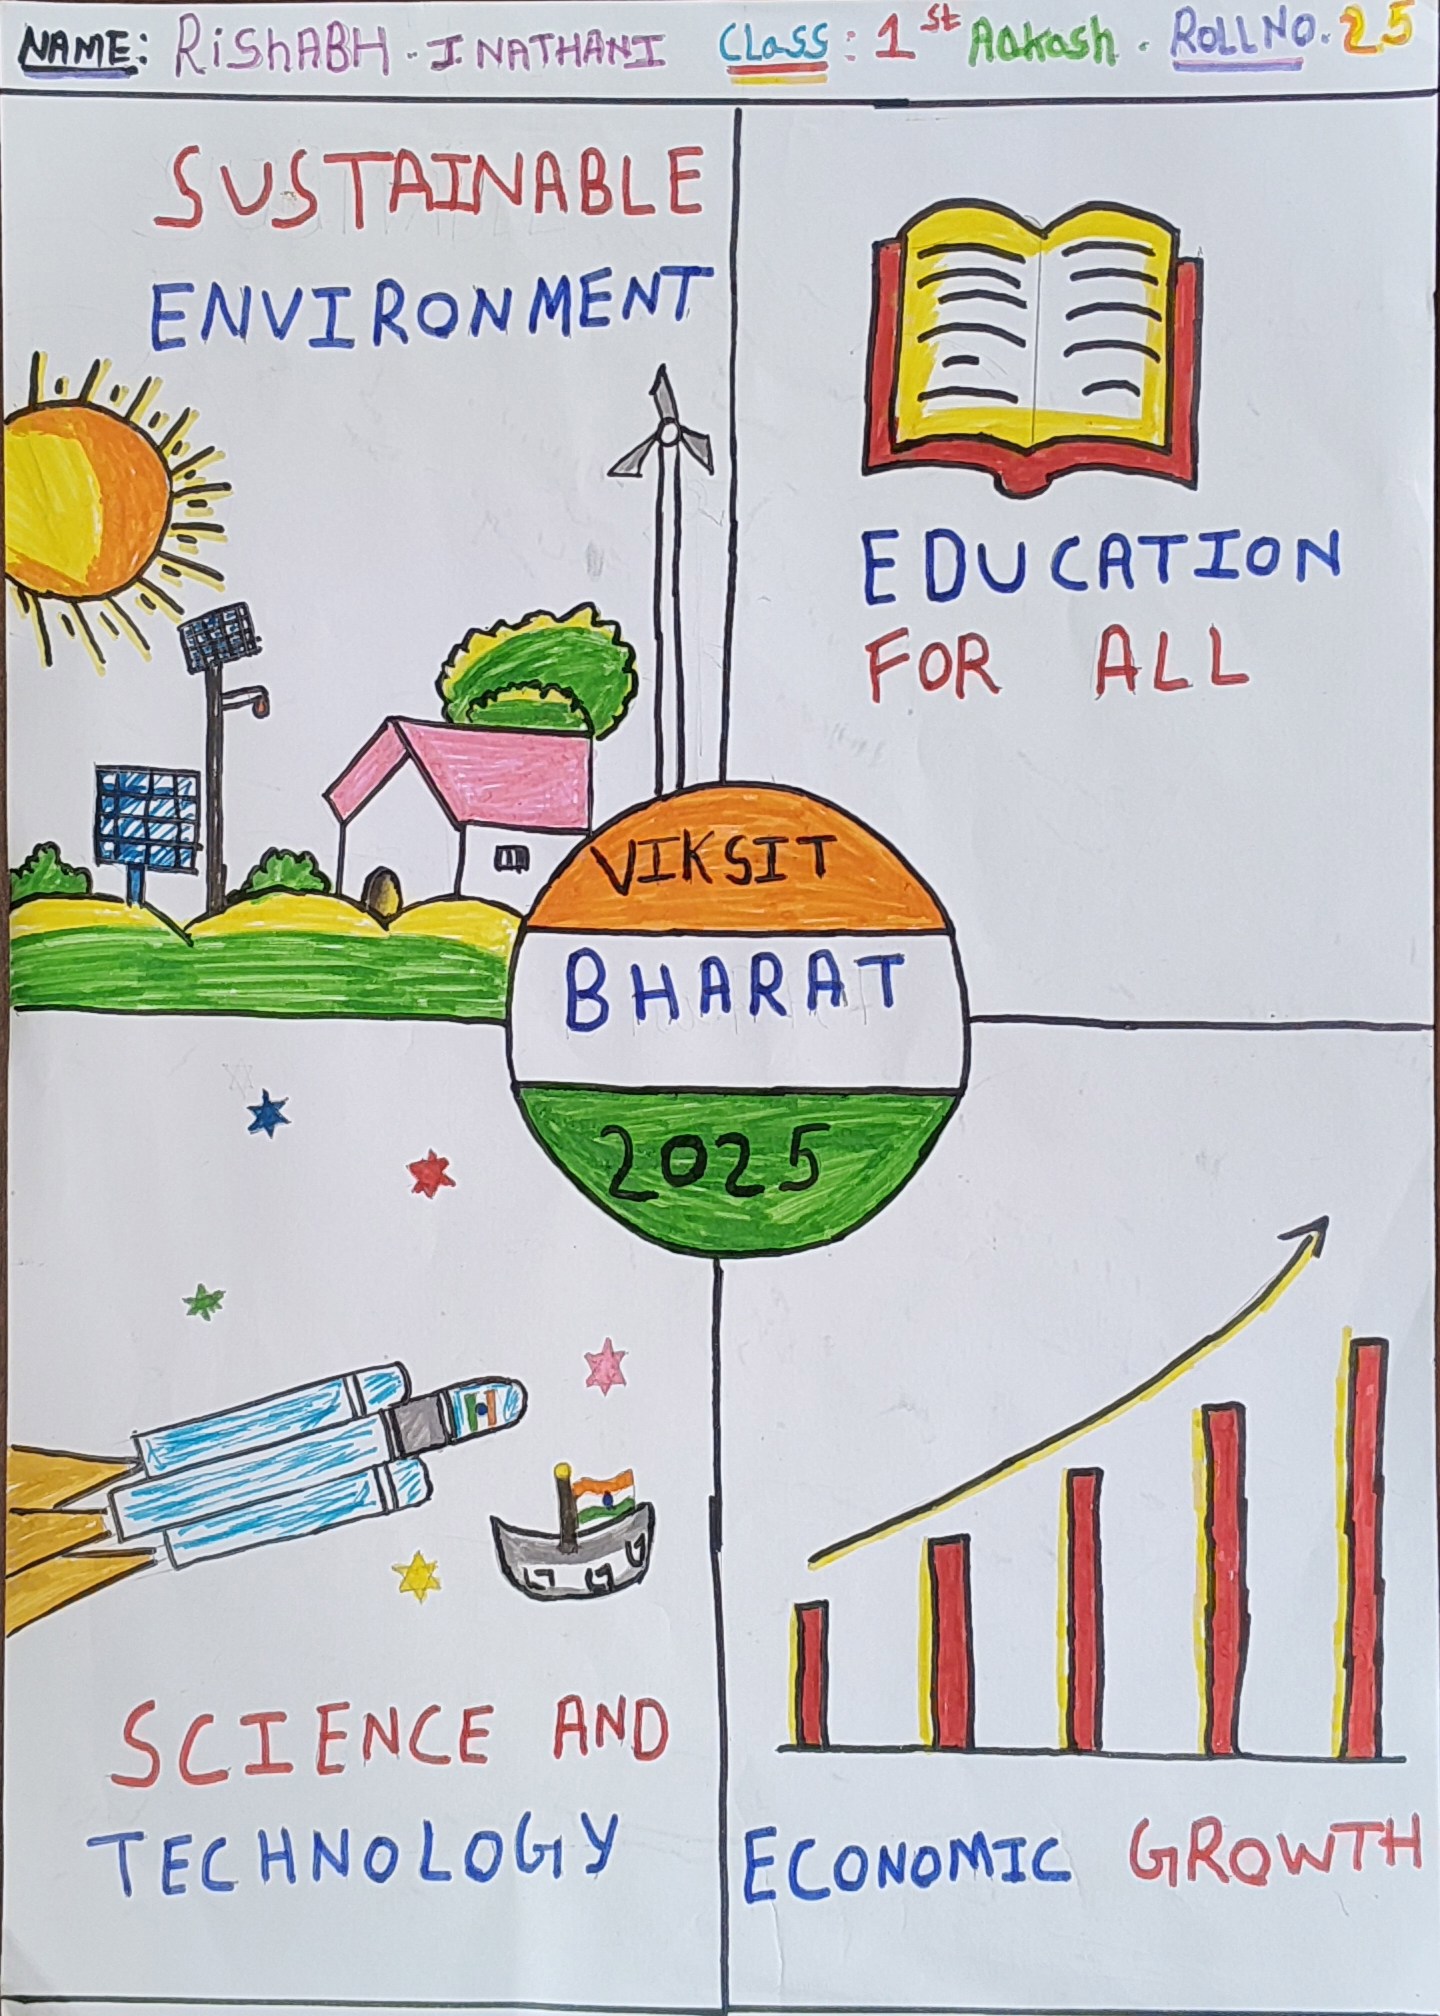 NAME: RiShABH. J. NATHANI Class: 1st Aakash. ROLLNO. 25
SUSTAINABLE
ENVIRONMENT
EDUCATION
FOR ALL
VIKSIT
BHARAT
2025
SCIENCE AND
TECHNOLOGY
ECONOMIC GROWTH